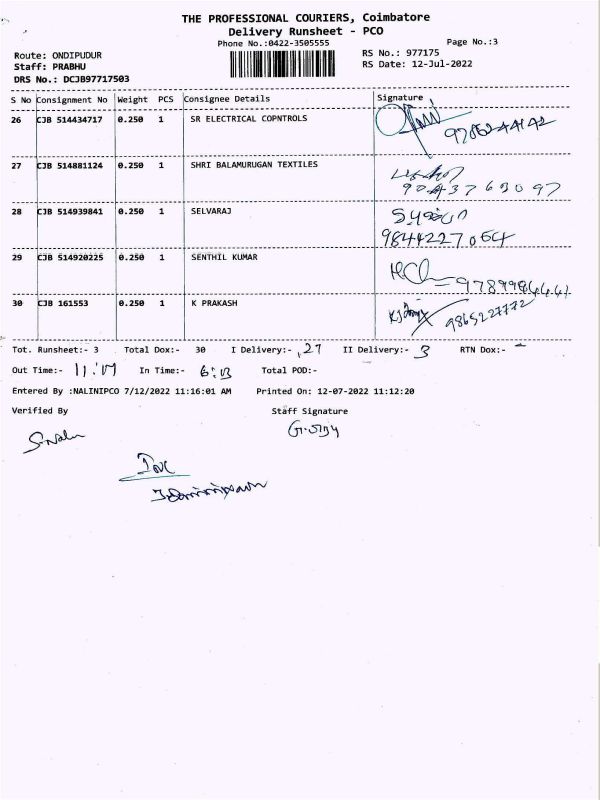 THE PROFESSIONAL COURIERS, Coimbatore
Delivery Runsheet - PCO
Phone No.:0422-3505555
Page No.:3
Route: ONDIPUDUR
RS No.: 977175
Staff: PRABHU
RS Date: 12-Jul-2022
DRS No.: DCJB97717503
S No Consignment No Weight PCS Consignee Details Signature
26 CJB 514434717 0.250 1 SR ELECTRICAL COPNTROLS
27 CJB 514881124 0.250 1 SHRI BALAMURUGAN TEXTILES
9043763097
28 CJB 514939841 0.250 1 SELVARAJ
9844227064
29 CJB 514920225 0.250 1 SENTHIL KUMAR
30 CJB 161553 0.250 1 K PRAKASH
9865227772
Tot. Runsheet:- 3 Total Dox:- 30 I Delivery:- 27 II Delivery:- 3 RTN Dox:- -
Out Time:- In Time:- Total POD:-
Entered By :NALINIPCO 7/12/2022 11:16:01 AM Printed On: 12-07-2022 11:12:20
Verified By Staff Signature